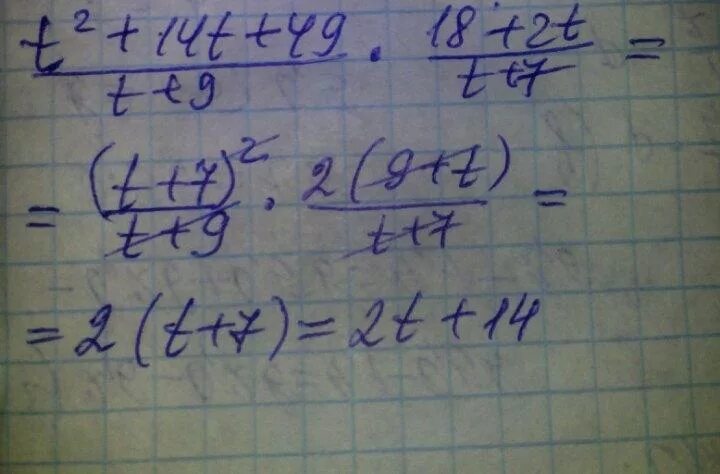 t² + 14t + 49 / t + 9 · 18 + 2t / t + 7 =
= (t + 7)² / t + 9 · 2 (9 + t) / t + 7 =
= 2 (t + 7) = 2t + 14